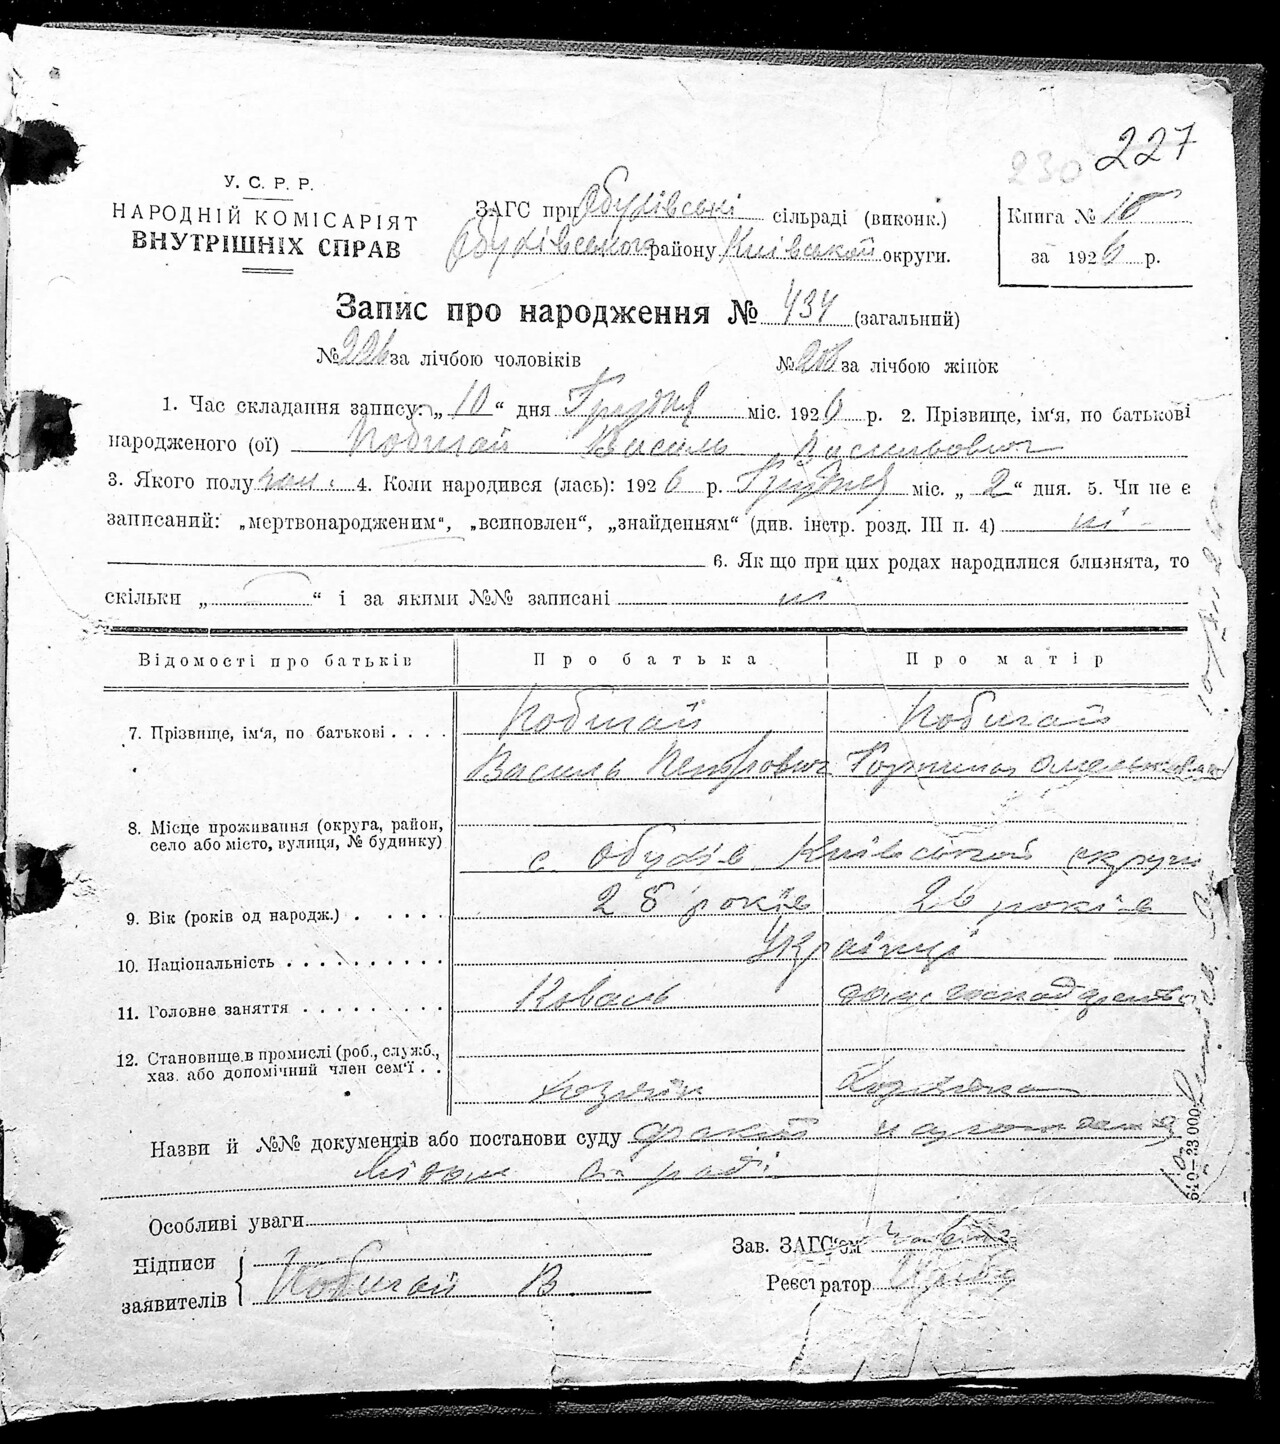 227
230
У. С. Р. Р.
НАРОДНІЙ КОМІСАРІЯТ
ВНУТРІШНІХ СПРАВ
ЗАГС при Обухівські сільраді (виконк.)
Обухівського району Київської округи.
Книга № 10
за 1926 р.
Запис про народження № 434 (загальний)
№ 226 за лічбою чоловіків
№ 208 за лічбою жінок
1. Час складання запису: „ 10 “ дня Грудня міс. 1926 р. 2. Прізвище, ім‘я, по батькові
народженого (ої) Кобигай Василь Васильович
3. Якого полу чол. 4. Коли народився (лась): 1926 р. Грудня міс. „ 2 “ дня. 5. Чи не є
записаний: „мертвонародженим“, „всиповлен“, „знайденням“ (див. інстр. розд. III п. 4) ні
6. Як що при цих родах народилися близнята, то
скільки „ “ і за якими №№ записані ні
Відомості про батьків
Про батька
Про матір
7. Прізвище, ім‘я, по батькові . . . .
Кобигай
Кобигай
Василь Петрович
8. Місце проживання (округа, район,
село або місто, вулиця, № будинку)
с. Обухів Київської округи
9. Вік (років од народж.) . . . . .
28 років
26 років
10. Національність . . . . . . . . . .
Українці
11. Головне заняття . . . . . . . . .
Коваль
дом. господарство
12. Становище в промислі (роб., служб.,
хаз. або допомічний член сем‘ї . .
хозяїн
Назви й №№ документів або постанови суду факт народження
відом сп раді
Особливі уваги
Підписи
заявителів
Кобигай В.
Зав. ЗАГС‘ом
Реєстратор